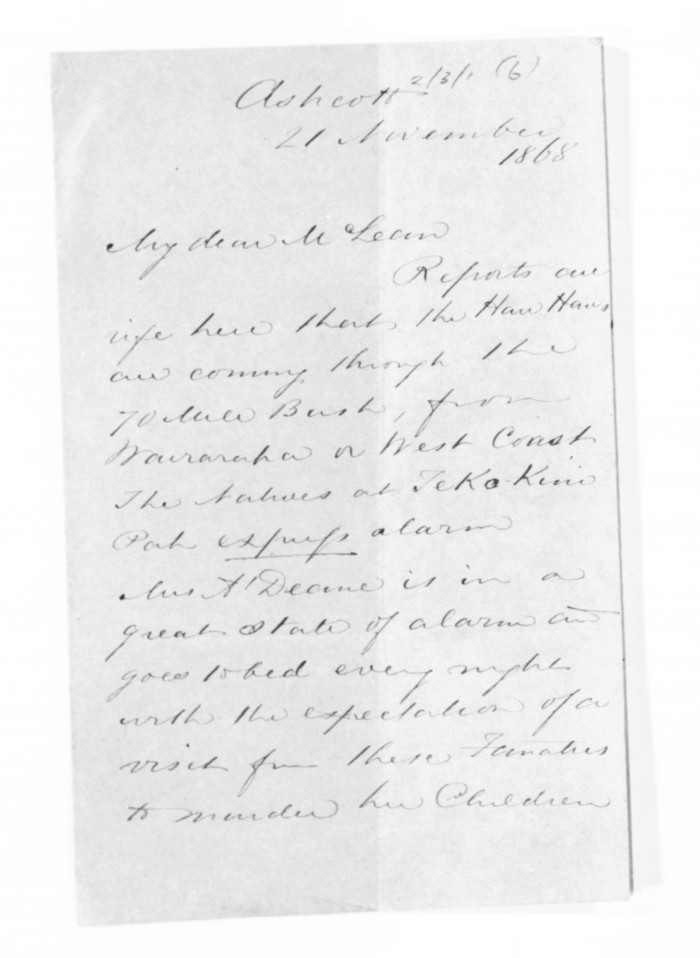 2/3/1 (6)
Ashcott
21 November
1868
My dear McLean
Reports are
rife here that the Hau Haus
are coming through the
70 Mile Bush, from
Wairarapa or West Coast
The Natives at Te
Pah express alarm
Mrs A'Deane is in a
great state of alarm and
goes to bed every night
with the expectation of a
visit from these Fanatics
to murder her Children